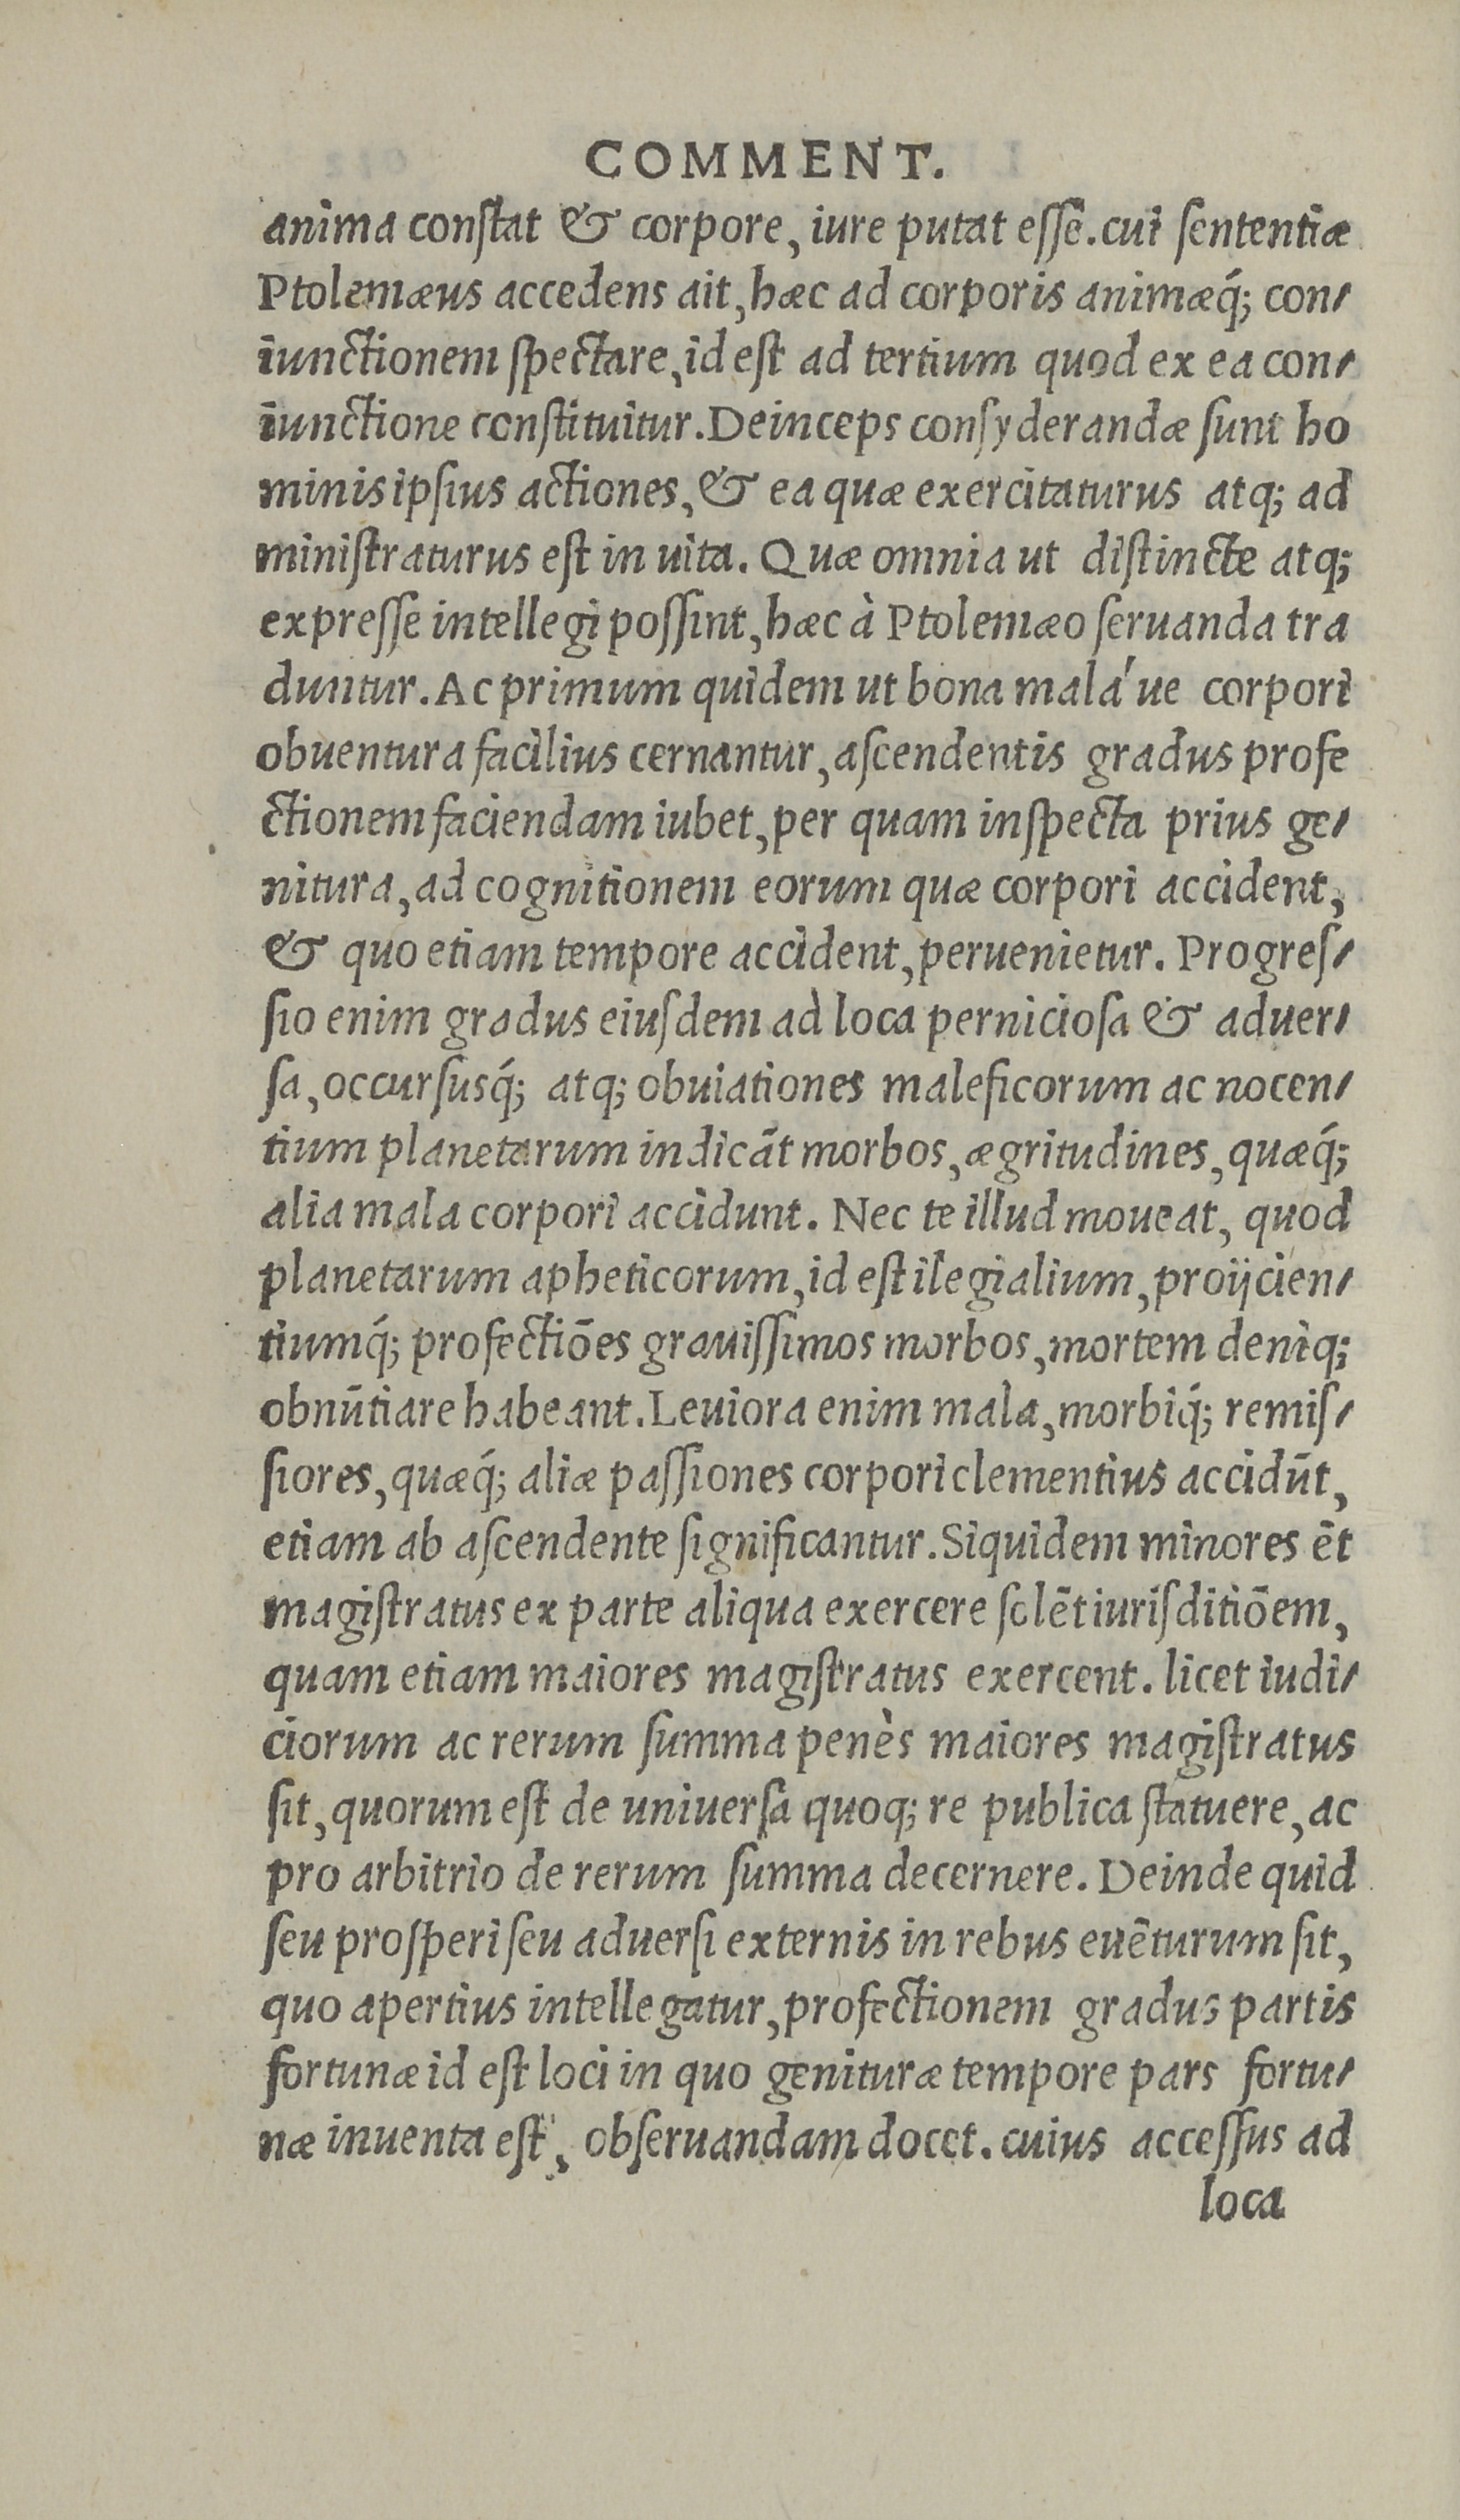 COMMENT.
anima constat & corpore, iure putat esse. cui sententiæ
Ptolemæus accedens ait, hæc ad corporis animæq́; con-
iunctionem spectare, id est ad tertium quod ex ea con-
iunctione constituitur. Deinceps consyderandæ sunt ho
minis ipsius actiones, & ea quæ exercitaturus atq; ad
ministraturus est in uita. Quæ omnia ut distincte atq;
expresse intellegi possint, hæc à Ptolemæo seruanda tra
duntur. Ac primum quidem ut bona malá ue corpori
obuentura facilius cernantur, ascendentis gradus profe
ctionem faciendam iubet, per quam inspecta prius ge-
nitura, ad cognitionem eorum quæ corpori accident,
& quo etiam tempore accident, peruenietur. Progres-
sio enim gradus eiusdem ad loca perniciosa & aduer-
sa, occursusq́; atq; obuiationes maleficorum ac nocen-
tium planetarum indicāt morbos, ægritudines, quæq́;
alia mala corpori accidunt. Nec te illud moueat, quod
planetarum apheticorum, id est ilegialium, proijcien-
tiumq́; profectiōes grauissimos morbos, mortem deniq;
obnūtiare habeant. Leuiora enim mala, morbiq́; remis-
siores, quæq́; aliæ passiones corpori clementius accidūt,
etiam ab ascendente significantur. Siquidem minores ēt
magistratus ex parte aliqua exercere solēt iurisditiōem,
quam etiam maiores magistratus exercent. licet iudi-
ciorum ac rerum summa penès maiores magistratus
sit, quorum est de uniuersa quoq; re publica statuere, ac
pro arbitrio de rerum summa decernere. Deinde quid
seu prosperi seu aduersi externis in rebus euēturum sit,
quo apertius intellegatur, profectionem gradus partis
fortunæ id est loci in quo genituræ tempore pars fortu-
næ inuenta est, obseruandam docet. cuius accessus ad
loca